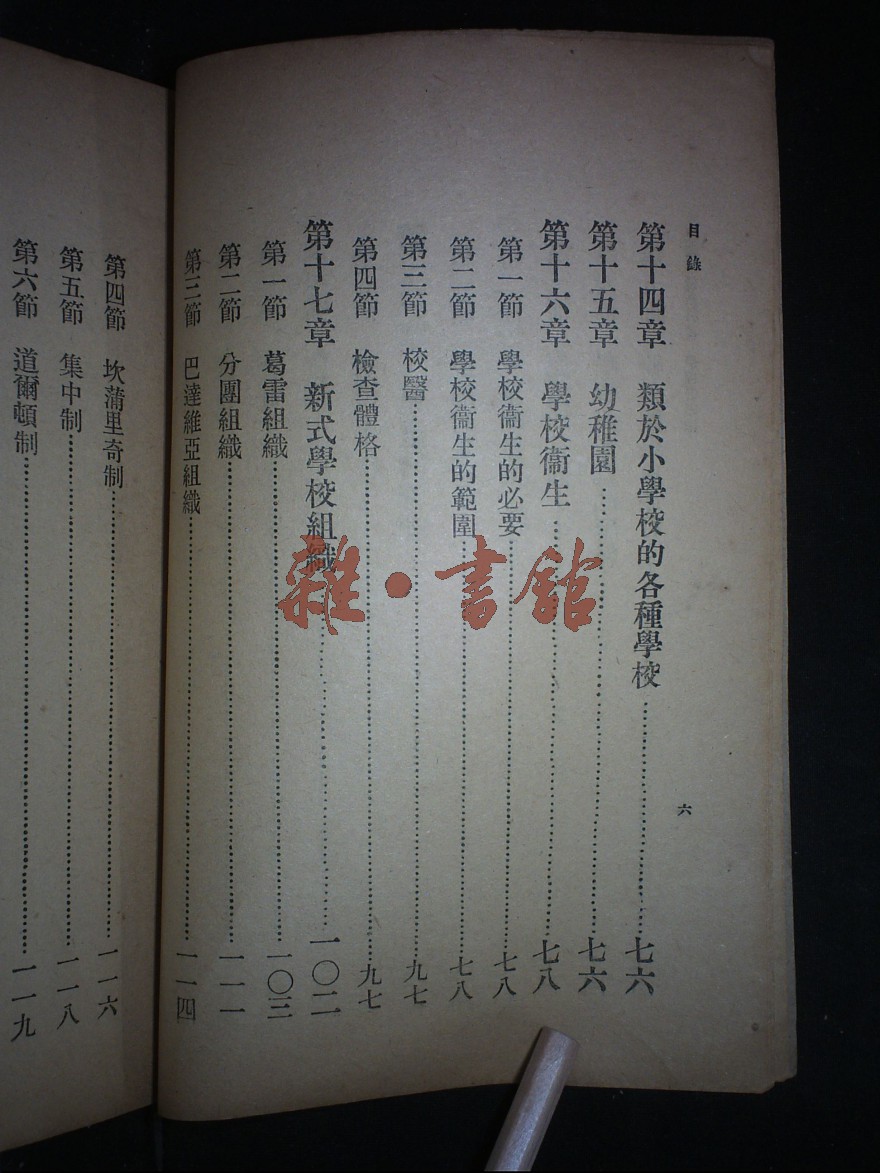 目錄
六
第十四章 類於小學校的各種學校……七六
第十五章 幼稚園……七六
第十六章 學校衞生……七八
第一節 學校衞生的必要……七八
第二節 學校衞生的範圍……七八
第三節 校醫……九七
第四節 檢查體格……九七
第十七章 新式學校組織……一〇二
第一節 葛雷組織……一〇三
第二節 分團組織……一一一
第三節 巴達維亞組織……一一四
第四節 坎蒲里奇制……一一六
第五節 集中制……一一八
第六節 道爾頓制……一一九
雜·書館